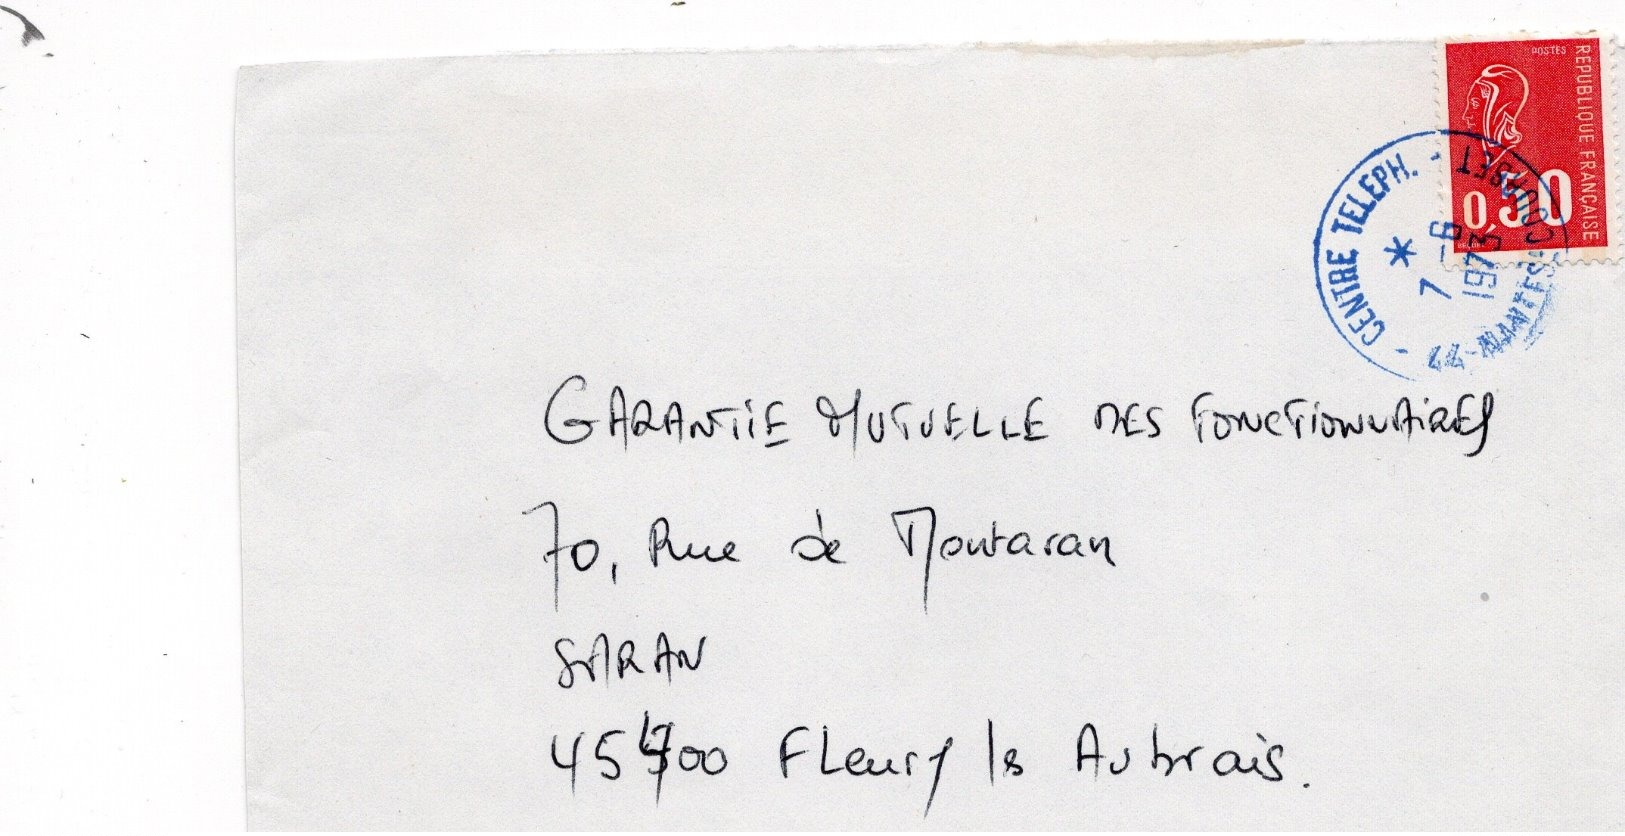 POSTES
REPUBLIQUE FRANÇAISE
0,50
CENTRE TELEPH. - COUASET
7 -6
1973
44-NANTES
GARANTIE MUTUELLE DES FONCTIONNAIRES
70, Rue de Montaran
SARAN
45400 Fleury ls Aubrais.